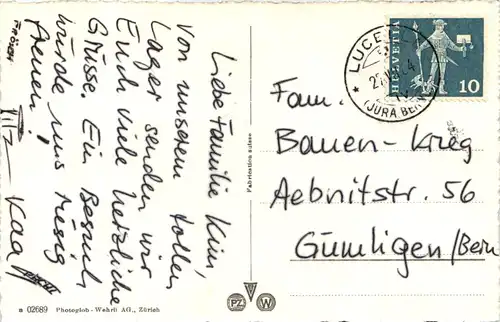 Liebe Familie Kim,
Von unserem tollen
Lager senden wir
Euch viele herzliche
Grüsse. Ein Besuch
würde uns riesig
freuen!
Kaa
Fabrication suisse
HELVETIA
10
LUCE
(JURA BER
Fam.
Bauen-Krieg
Aebnitstr. 56
Gümligen/Bern
n 02689 Photoglob-Wehrli AG., Zürich
PZ W